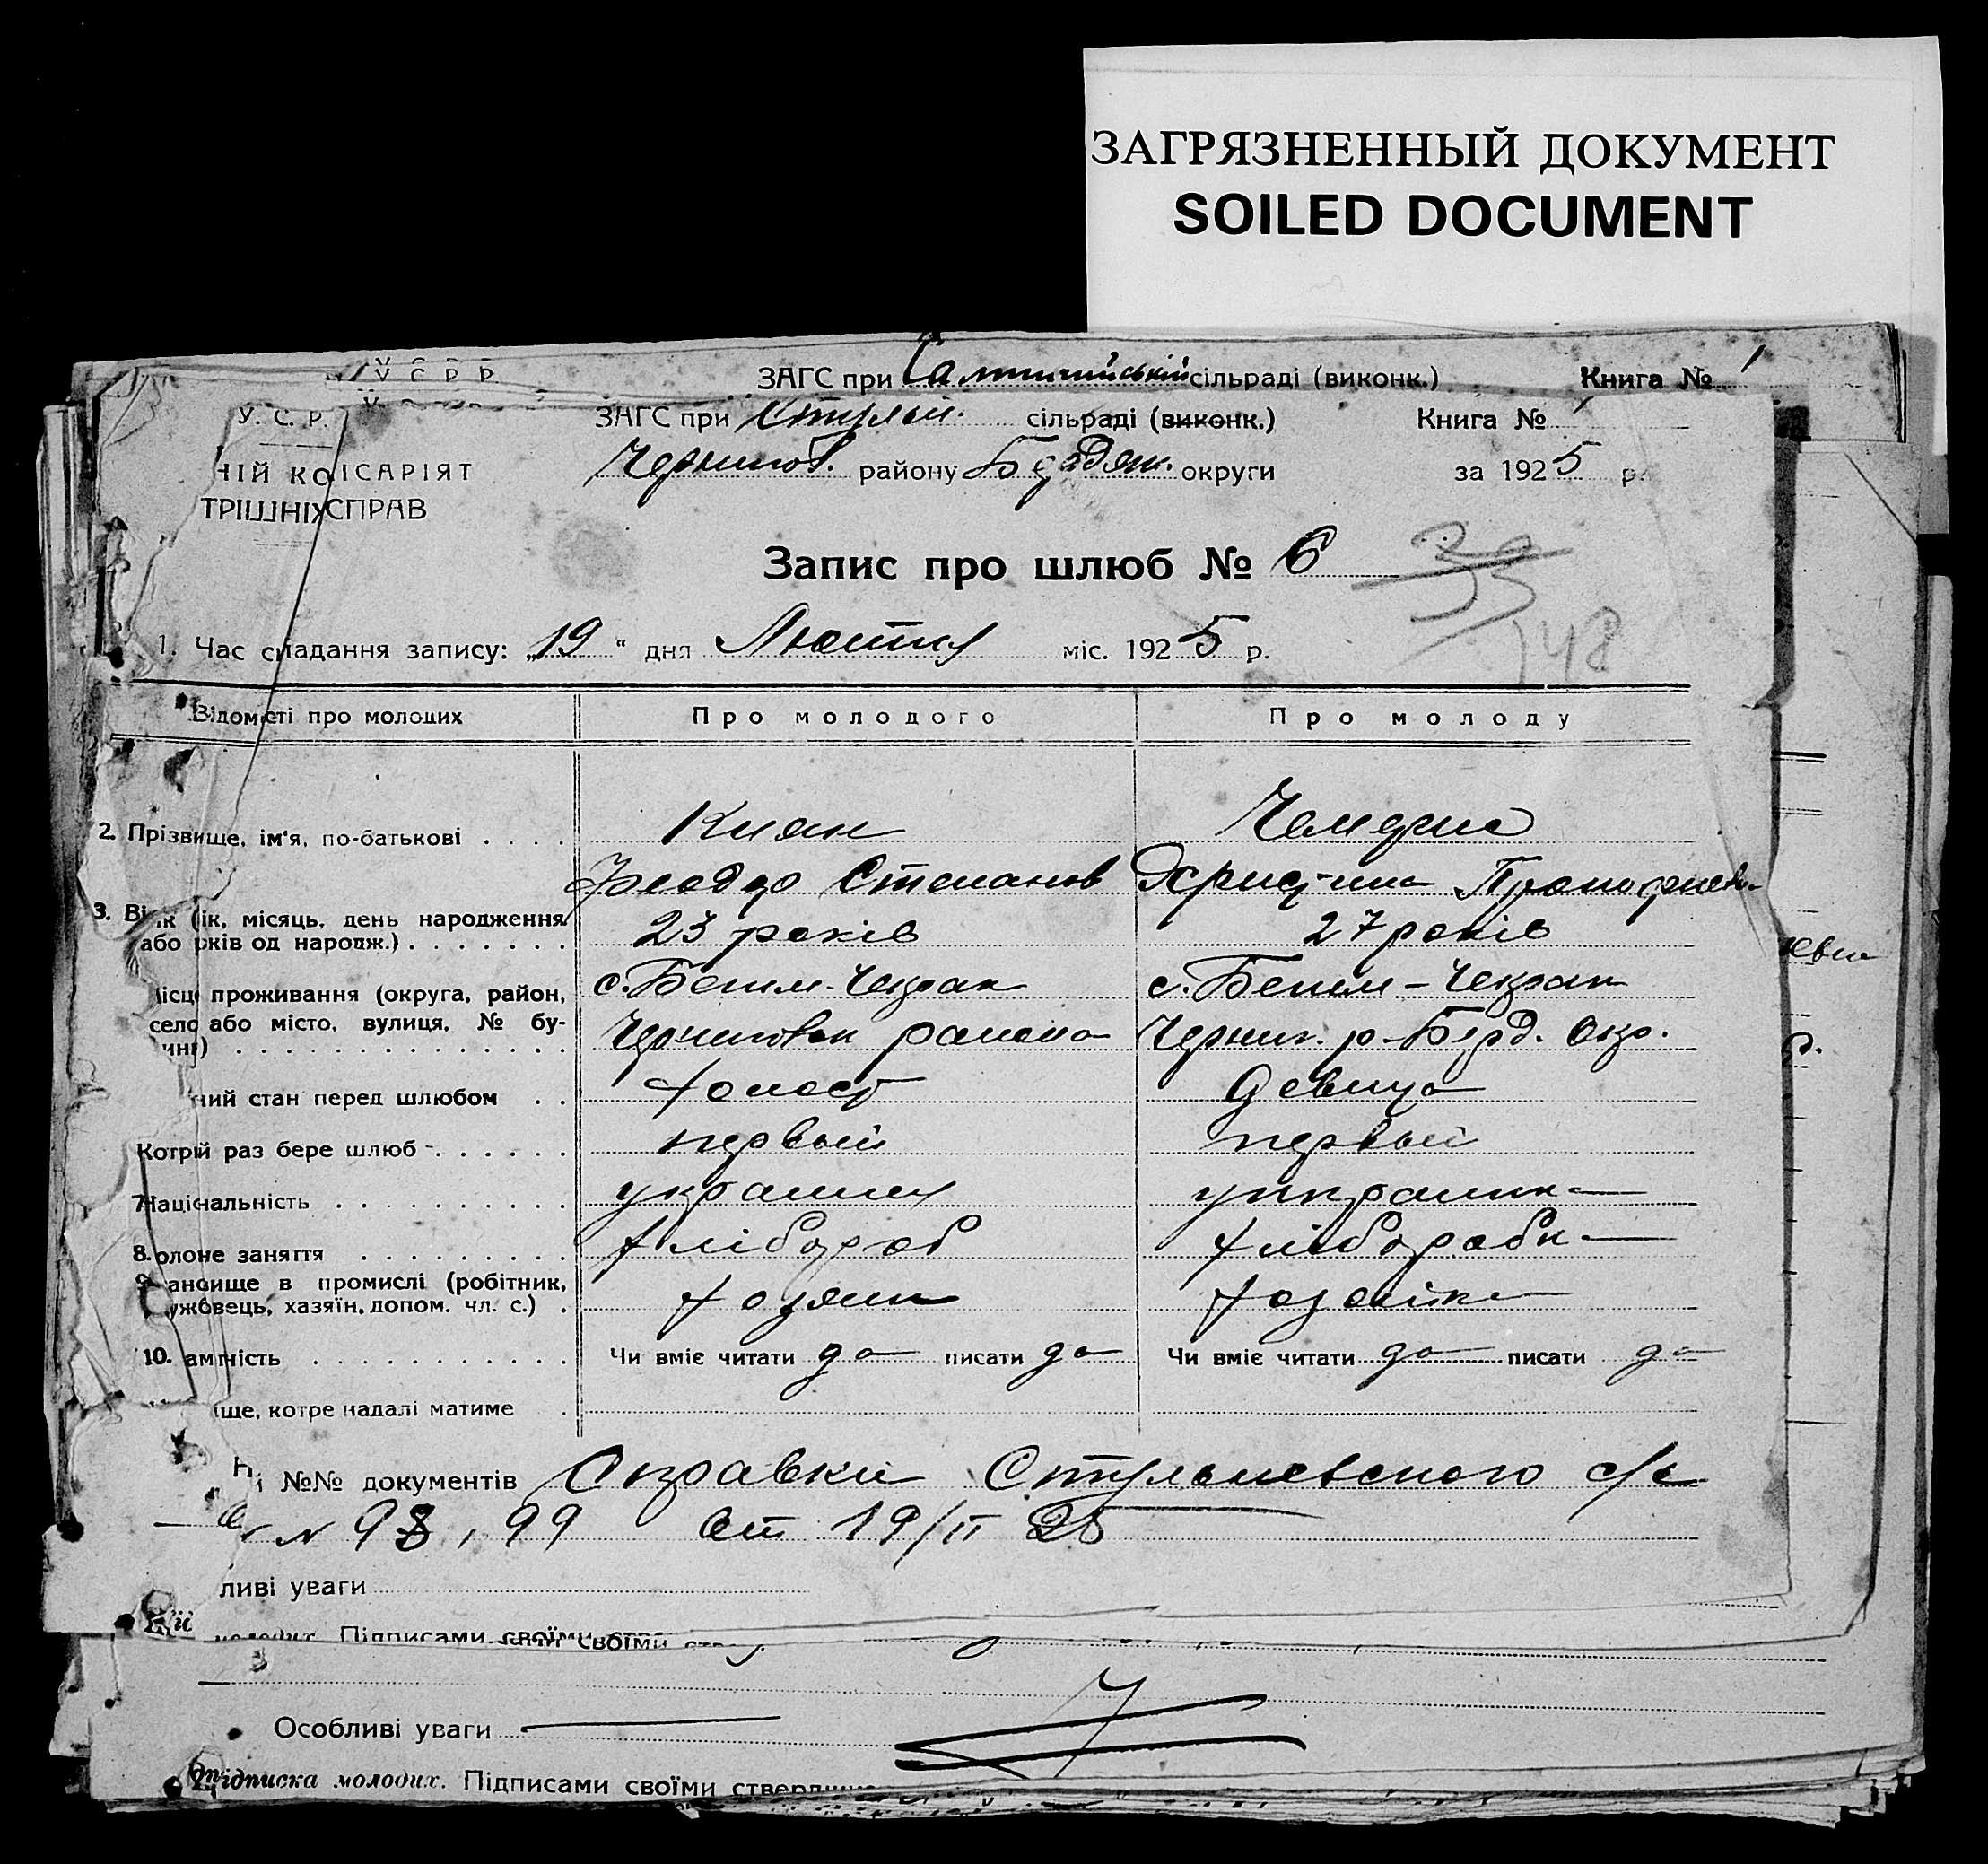 ЗАГРЯЗНЕННЫЙ ДОКУМЕНТ
SOILED DOCUMENT
У С Р Р
ЗАГС при сільраді (виконк.) Книга № 1
У. С. Р. ЗАГС при Стульн. сільраді (виконк.) Книга № 1
НІЙ КОМІСАРІЯТ Чернигов. району Бердян. округи за 1925 р.
ТРІШНІХ СПРАВ
Запис про шлюб № 6
148
1. Час складання запису: „19“ дня Лютня міс. 1925 р.
Відомості про молодих Про молодого Про молоду
2. Прізвище, ім'я, по-батькові Киян Чемерис
Феодор Степанов Христина
3. Вік (рік, місяць, день народження 23 років 27 років
або років од народж.)
Місце проживання (округа, район, с. Бегим-Чекрак с. Бегим-Чекрак
село або місто, вулиця, № бу-
динк) Черниговск района Черниг. р. Берд. окр.
ний стан перед шлюбом холост девица
Котрий раз бере шлюб первый первый
7. Національність украинец украинка
8. Головне заняття хлібороб хліборобка
9. Становище в промислі (робітник, хозяин хозяйка
служовець, хазяїн, допом. чл. с.)
10. Грамотність Чи вміє читати да писати да Чи вміє читати да писати да
ище, котре надалі матиме
№№ документів Справки Стульневского с/с
№ 98, 99 от 19/II 25
ливі уваги
молодих. Підписами своїми
Особливі уваги
Підписка молодих. Підписами своїми